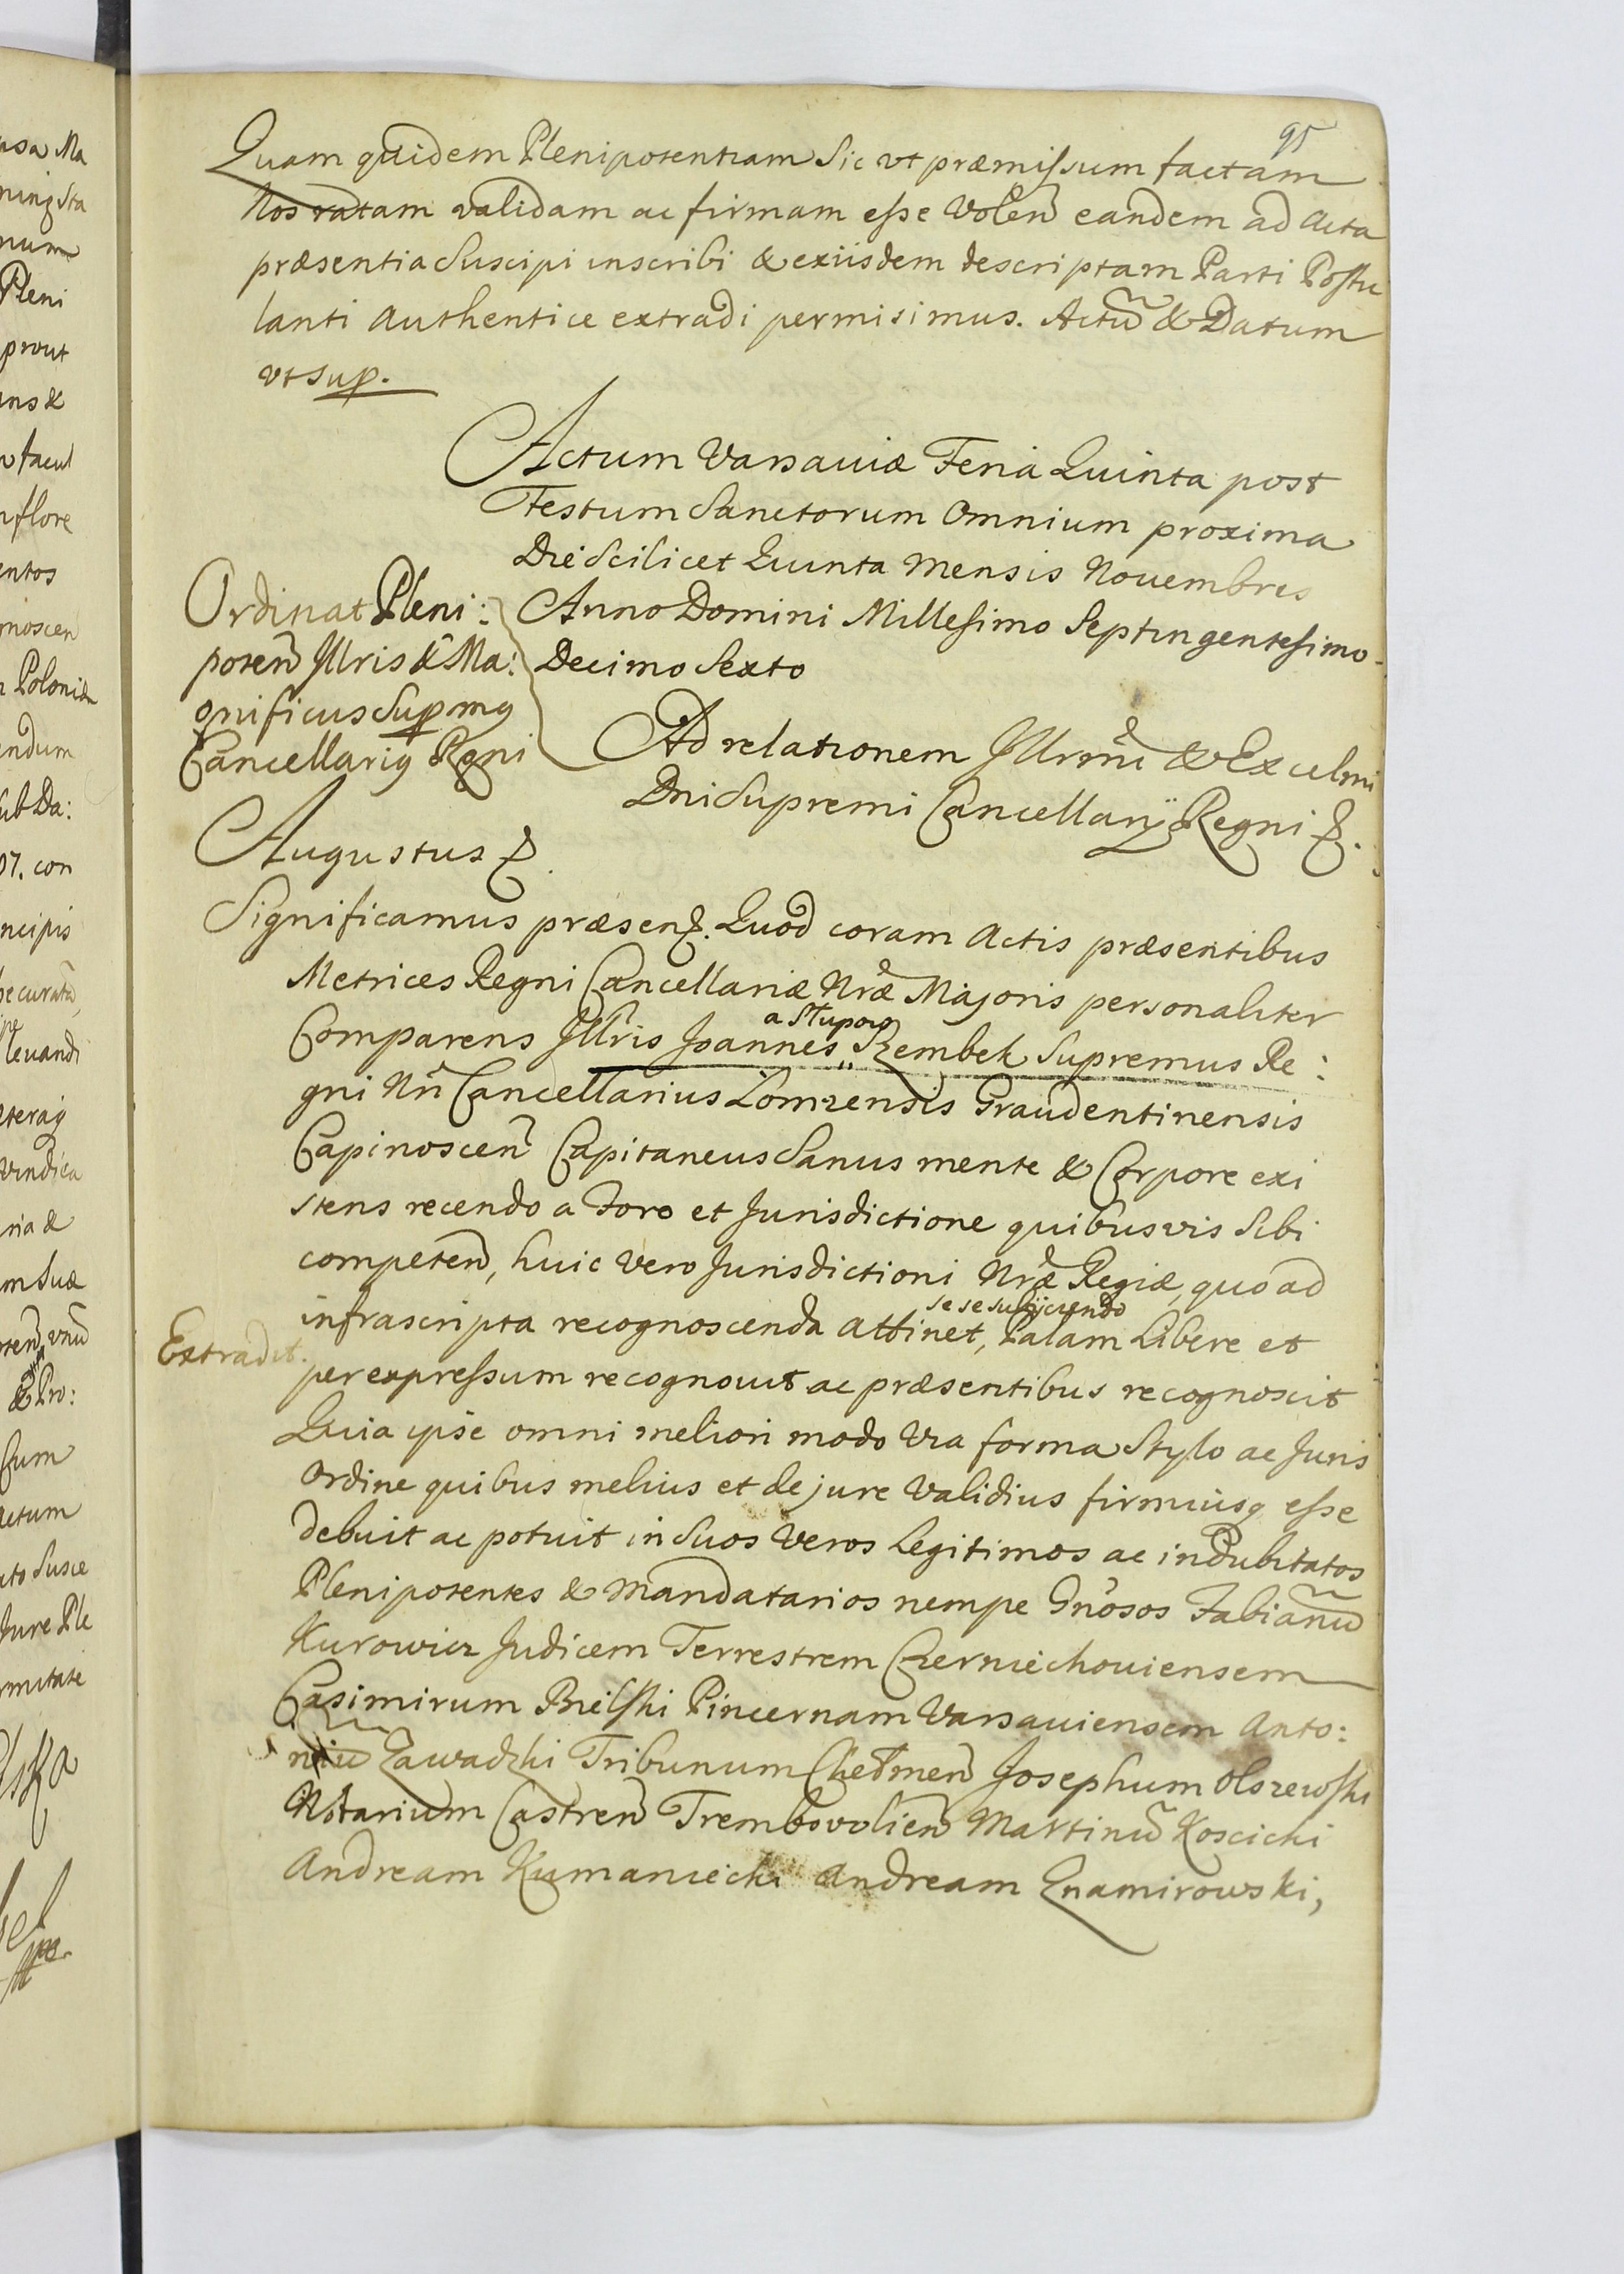 95
Quam quidem Plenipotentiam Sic vt præmissum factam
Nos ratam validam ac firmam esse Volen̄ eandem ad Acta
præsentia Suscipi inscribi & exiisdem descriptam Parti Postu
lanti Authentice extradi permisimus. Actū & Datum
vt sup.
Actum Varsaviæ Feria Quinta post
Festum Sanctorum Omnium proxima
Die Scilicet Quinta Mensis Novembris
Anno Domini Millesimo Septingentesimo
Decimo Sexto
Ordinat Pleni:
poten̄ Jllris & Ma:
gnificus Supmg
Cancellarig Rgni
Ad relationem Jllrmi & Excelmi
Dni Supremi Cancellarij Regni &.
Augustus &.
Significamus præsen&. Quod coram Actis præsentibus
Metrices Regni Cancellariæ Nræ Majoris personaliter
a Stupow
Comparens Jllris Joannes Szembek Supremus Re:
gni Nri Cancellarius Lomzensis Graudentinensis
Capinoscen̄ Capitaneus Sanus mente & Corpore exi
stens recendo a Foro et Jurisdictione quibusvis Sibi
competen̄, huic vero Jurisdictioni Nræ Regiæ, quo ad
se se subijciendo
infrascripta recognoscenda attinet, Palam Libere et
Extradit.
per expressum recognovit ac præsentibus recognoscit
Quia ipse omni meliori modo Via forma Stylo ac Juris
Ordine quibus melius et de jure Validius firmiusq esse
debuit ac potuit in Suos Veros Legitimos ac indubitatos
Plenipotentes & Mandatarios nempe Gnosos Fabianū
Kurowicz Judicem Terrestrem Czerniechoviensem
Casimirum Bielski Pincernam Varsaviensem Anto:
niū Zawadzki Tribunum Chełmen̄ Josephum Olszewski
Notarium Castren̄ Trembovolien̄ Martinū Koscicki
Andream Kumaniecki Andream Znamirowski,